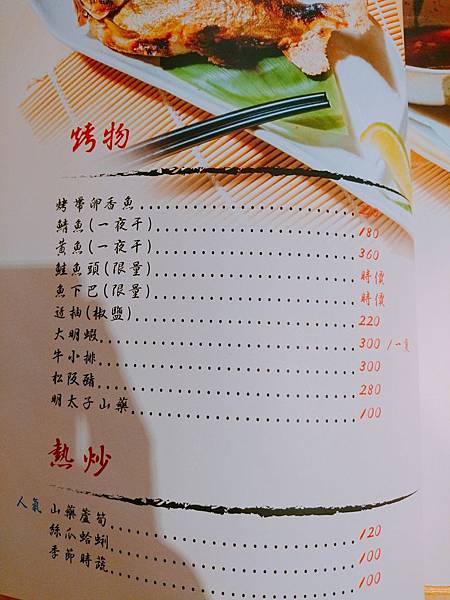 烤物
烤帶卵香魚
鯖魚(一夜干) 180
黃魚(一夜干) 360
鮭魚頭(限量) 時價
魚下巴(限量) 時價
透抽(椒鹽) 220
大明蝦 300 /一隻
牛小排 300
松阪豬 280
明太子山藥 100
熱炒
人氣 山藥蘆筍 120
絲瓜蛤蜊 100
季節時蔬 100